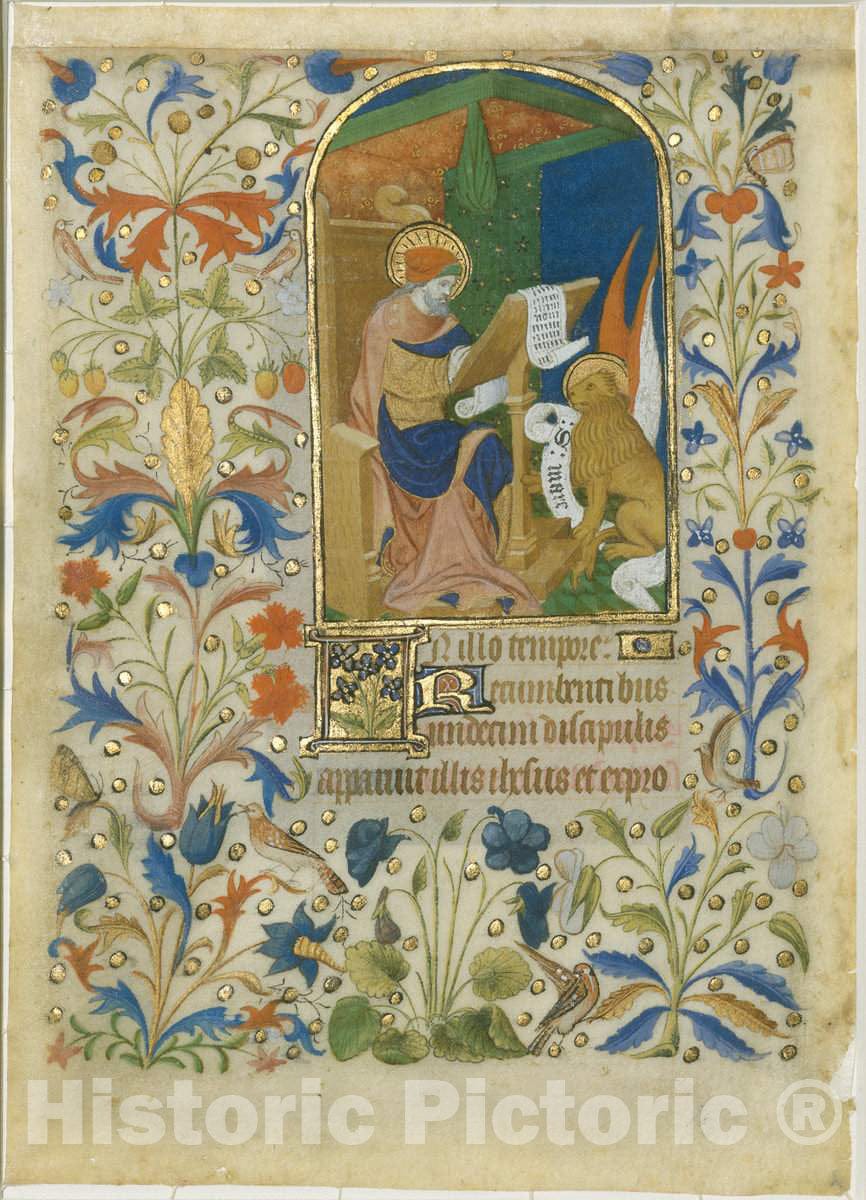 S: marc
In illo tempore:
Recumbentibus
undecim discipulis
apparuit illis ihesus et expro
Historic Pictoric ®